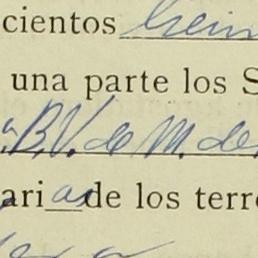 cientos
una parte los S
ª B. V. de M. de
arias de los terr